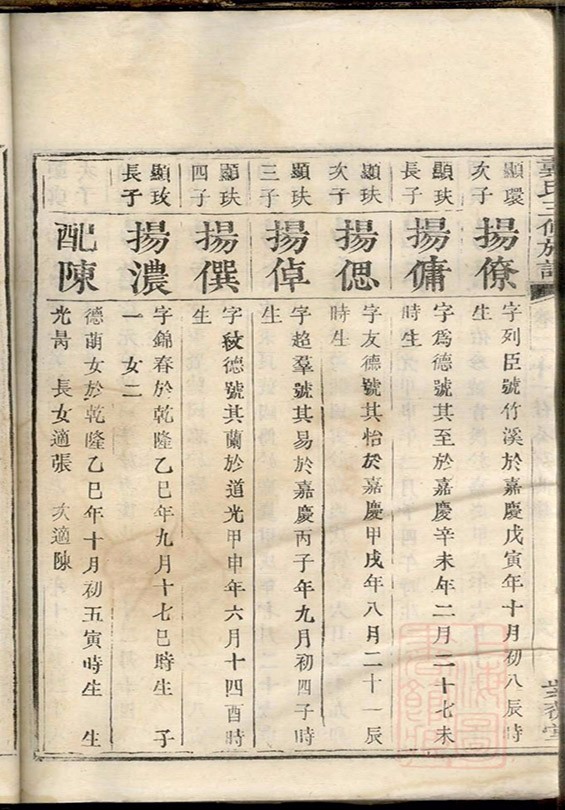 龔氏三修族譜
顯環
次子
揚僚
字列臣號竹溪於嘉慶戊寅年十月初八辰時
生
顯玞
長子
揚傭
字爲德號其至於嘉慶辛未年二月二十七未
時生
顯玞
次子
揚偲
字友德號其怡於嘉慶甲戌年八月二十一辰
時生
顯玞
三子
揚倬
字超羣號其易於嘉慶丙子年九月初四子時
生
顯玞
四子
揚僎
字德號其蘭於道光甲申年六月十四酉時
生
顯玫
長子
揚濃
字錦春於乾隆乙巳年九月十七巳時生 子
一 女二
配陳
德蕳女於乾隆乙巳年十月初五寅時生 生
光昺 長女適張 次適陳